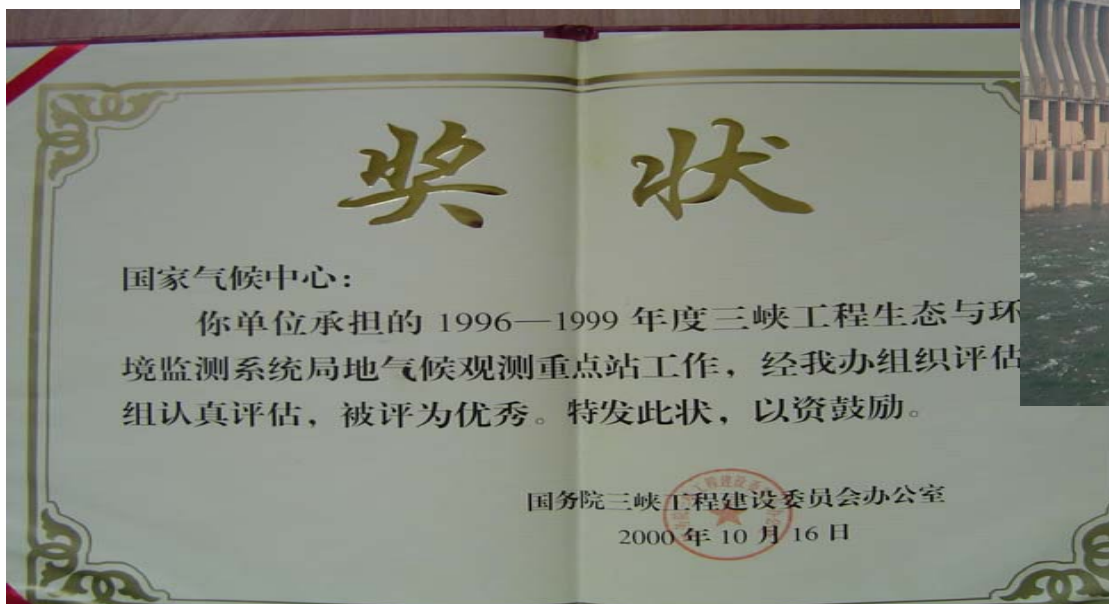 奖 状
国家气候中心:
你单位承担的 1996—1999 年度三峡工程生态与环
境监测系统局地气候观测重点站工作，经我办组织评估
组认真评估，被评为优秀。特发此状，以资鼓励。
国务院三峡工程建设委员会办公室
2000 年 10 月 16 日